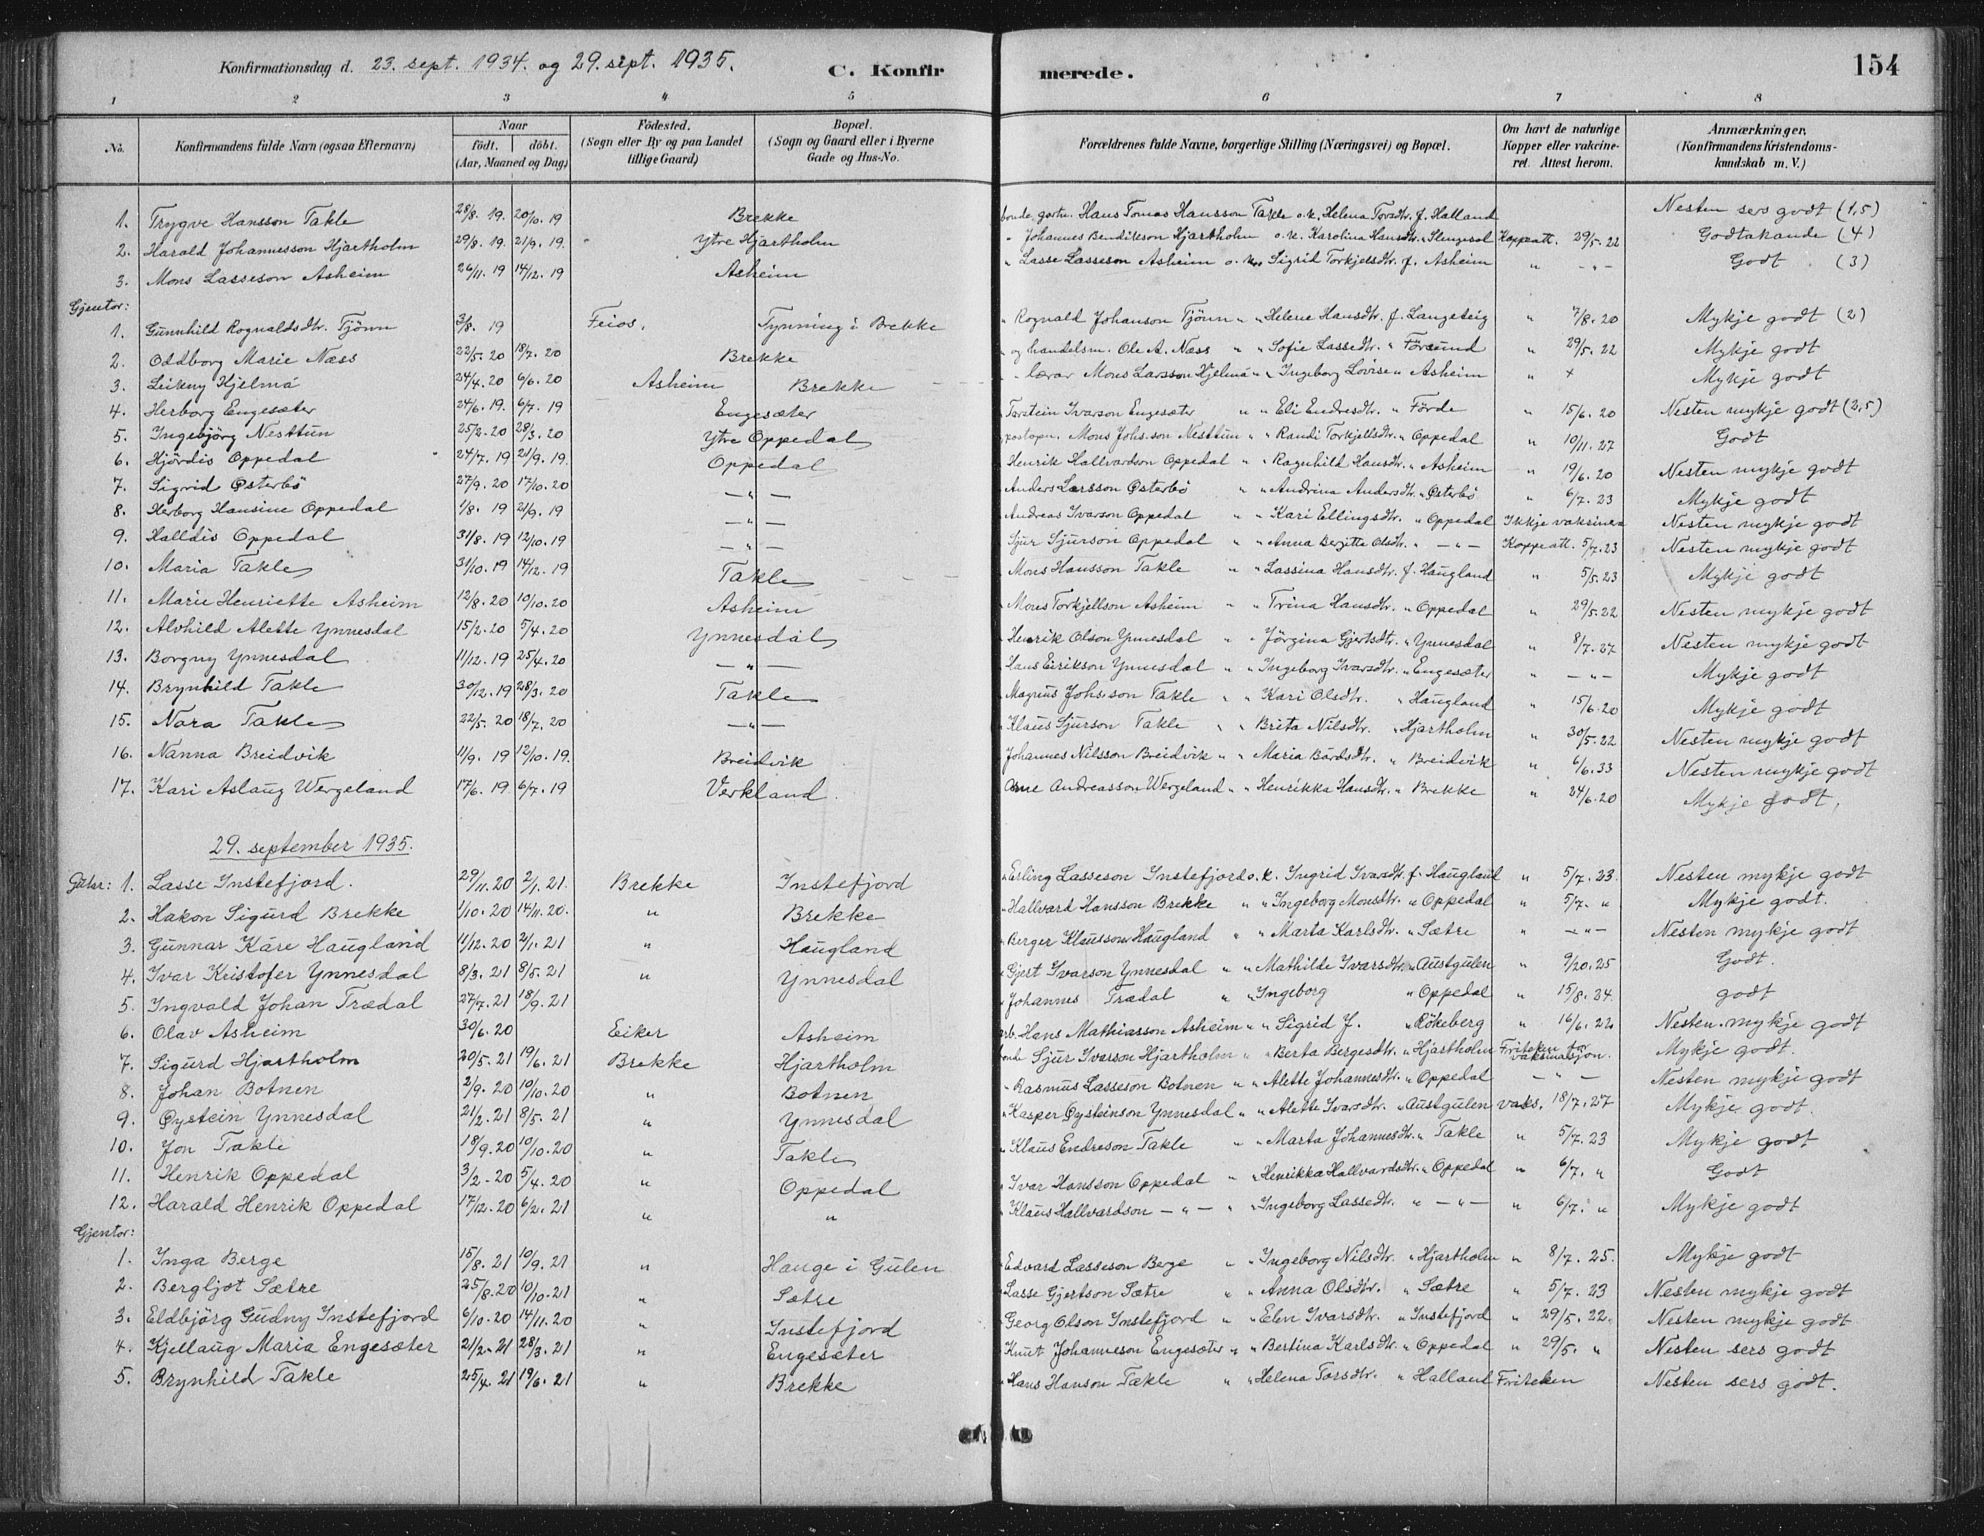 Konfirmationsdag d. 23. sept. 1934. og 29. sept. 1935. C. Konfirmerede. 154
1 2 3 4 5 6 7 8
No. Konfirmandens fulde Navn (ogsaa Efternavn) Naar født. døbt. (Aar, Maaned og Dag) Födested. (Sogn eller By og paa Landet tillige Gaard) Bopæl. (Sogn og Gaard eller i Byerne Gade og Hus-No. Forældrenes fulde Navne, borgerlige Stilling (Næringsvei) og Bopæl. Om havt de naturlige Kopper eller vakcineret. Attest herom. Anmærkninger, (Konfirmandens Kristendomskundskab m. V.)
1. Trygve Hansson Takle 28/8. 19. 20/10. 19 Brekke bonde, gartn. Hans Tomas Hansson Takle o.k. Helena Torsdtr. f. Halland Nesten sers godt (1,5)
2. Harald Johannesson Hjartholm 29/8. 19. 21/9. 19. Ytre Hjartholm " Johannes Bendikson Hjartholm o.k. Karolina Hansdtr. " Slengesol Koppeatt. 29/5. 22 Godtakande (4)
3. Mons Lasseson Asheim 26/11. 19 14/12. 19 Asheim " Lasse Lasseson Asheim o.k. Sigrid Torkjelsdtr. f. Asheim " -"- Godt (3)
Gjentor:
1. Gunnhild Rognaldsdtr. Tjønn 3/8. 19 Feios. Tynning i Brekke " Rognald Johanson Tjønn " " Helene Hansdtr. f. Langeteig " 7/8. 20 Mykje godt (2)
2. Oddborg Marie Næss 22/5. 20 18/7. 20 Brekke " og handelsm. Ole A. Næss " " Sofie Lassedtr. " Førsund " 29/5. 22 Mykje godt
3. Leikny Hjelmå 24/4. 20 6/6. 20 Asheim Brekke " lærar Mons Larsson Hjelmå " " Ingeborg Lovise " Asheim " + Mykje godt
4. Herborg Engesæter 24/6. 19. 6/7. 19 Engesæter Torstein Ivarson Engesæter " " Eli Endresdtr. " Førde " 15/6. 20 Nesten mykje godt (2,5)
5. Ingebjörg Nesttun 25/2. 20 28/3. 20 Ytre Oppedal postopn. Mons Johs.son Nesttun " " Randi Torkjellsdtr. " Oppedal " 10/11. 27 Godt
6. Hjördis Oppedal 24/7. 19 21/9. 19. Oppedal Henrik Hallvardson Oppedal " " Ragnhild Hansdtr. " Asheim " 19/6. 20 Nesten mykje godt
7. Sigrid Østerbö 27/9. 20 17/10. 20 -"- Anders Larsson Østerbö " " Andrina Andersdtr. " Østerbö " 6/7. 23 Mykje godt
8. Herborg Hansine Oppedal 1/8. 19 21/9. 19 -"- Andreas Ivarson Oppedal " " Kari Ellingsdtr. " Oppedal Ikkje vaksinera Nesten mykje godt
9. Halldis Oppedal 31/8. 19 12/10. 19 -"- Sjur Sjurson Oppedal " " Anna Bergitte Olsdtr. " -"- Koppeatt. 5/7. 23 Nesten mykje godt
10. Maria Takle 31/10. 19 14/12. 19 Takle " Mons Hansson Takle " " Lassina Hansdtr. f. Haugland " 5/5. 23 Mykje godt
11. Marie Henriette Asheim 12/8. 20 10/10. 20 Asheim " Mons Torkjellson Asheim " " Trina Hansdtr. " Oppedal " 29/5. 22 Nesten mykje godt
12. Alvhild Alette Ynnesdal 15/2. 20 5/4. 20 Ynnesdal " Henrik Olson Ynnesdal " " Jörgina Gjertsdt. " Ynnesdal " 8/7. 27 Nesten mykje godt
13. Borgny Ynnesdal 11/12. 19 25/4. 20 -"- Hans Eirikson Ynnesdal " " Ingeborg Ivarsdtr. " Engesæter " -"- Mykje godt
14. Brynhild Takle 30/12. 19 28/3. 20 Takle " Magnus Johs.son Takle " " Kari Olsdtr. " Haugland " 15/6. 20 Mykje godt
15. Nora Takle 22/5. 20 18/7. 20 -"- Klaus Sjurson Takle " " Brita Nilsdtr. " Hjartholm " 30/5. 22 Nesten mykje godt
16. Nanna Breidvik 11/9. 19 12/10. 19. Breidvik Johannes Nilsson Breidvik " " Maria Bårdsdtr. " Breidvik " 6/6. 33 Nesten mykje godt
17. Kari Aslaug Wergeland 17/6. 19 6/7. 19 Verkland Arne Andreasson Wergeland " " Henrikka Hansdtr. " Brekke " 24/6. 20 Mykje godt.
29. september 1935.
Gutar: 1. Lasse Instefjord. 29/11. 20 2/1. 21. Brekke Instefjord " Erling Lasseson Instefjord o.k. Ingrid Ivarsdtr. f. Haugland " 5/7. 23. Nesten mykje godt
2. Hakon Sigurd Brekke 1/10. 20 14/11. 20. " Brekke " Hallvard Hansson Brekke " " Ingeborg Monsdtr. " Oppedal " 5/7. " Mykje godt.
3. Gunnar Kåre Haugland 11/12. 20 2/1. 21 " Haugland " Berger Klausson Haugland " " Marta Karlsdtr. " Sætre " -"- Nesten mykje godt
4. Ivar Kristofer Ynnesdal 8/3. 21 8/5. 21 " Ynnesdal " Gjert Ivarson Ynnesdal " " Mathilde Ivarsdtr. " Austgulen " 9/20. 25 Godt.
5. Ingvald Johan Trædal 27/7. 21 18/9. 21 " Johannes Trædal " " Ingeborg " Oppedal " 15/8. 24. godt
6. Olav Asheim 30/6. 20 Eiker Asheim arb. Hans Mathiasson Asheim " " Sigrid J. " Rökeberg " 16/6. 22 Nesten mykje godt
7. Sigurd Hjartholm 20/5. 21 19/6. 21 Brekke Hjartholm bonde Sjur Ivarson Hjartholm " " Berta Bergesdtr. " Hjartholm Friteken for vaksinasjon. Mykje godt.
8. Johan Botnen 2/9. 20 10/10. 20 " Botnen " Rasmus Lasseson Botnen " " Alette Johannesdtr. " Oppedal -"- Nesten mykje godt
9. Øystein Ynnesdal 21/2. 21 8/5. 21 " Ynnesdal " Kasper Øysteinson Ynnesdal " " Alette Ivarsdtr. " Austgulen vaks. 18/7. 27 Mykje godt.
10. Jon Takle 18/9. 20 10/10. 20 " Takle " Klaus Endreson Takle " " Marta Johannesdtr. " Takle " 5/7. 23 Mykje godt
11. Henrik Oppedal 3/2. 20 5/4. 20 " Oppedal " Ivar Hansson Oppedal " " Henrikka Hallvardsdtr. " Oppedal " 6/7. " Godt
12. Harald Henrik Oppedal 17/12. 20 6/2. 21 " " " Klaus Hallvardson -"- " " Ingeborg Lassedtr. " -"- " 6/7. " Mykje godt
Gjentor:
1. Inga Berge 15/8. 21 10/9. 21 " Hauge i Gulen Edvard Lasseson Berge " " Ingeborg Nilsdtr. " Hjartholm " 8/7. 25. Mykje godt
2. Bergljot Sætre 25/8. 20 10/10. 21 " Sætre Lasse Gjertson Sætre " " Anna Olsdtr. " Sætre " 5/7. 23 Nesten mykje godt
3. Eldbjörg Gudny Instefjord 6/10. 20 14/11. 20 " Instefjord Georg Olson Instefjord " " Elen Ivarsdtr. " Instefjord " 29/5. 22. Nesten mykje godt
4. Kjellaug Maria Engesæter 21/2. 21 28/3. 21 " Engesæter " Knut Johanneson Engesæter " " Bertina Karlsdtr. " Oppedal " 29/5. " Nesten sers godt
5. Brynhild Takle 25/4. 21 19/6. 21 " Brekke " Hans Hanson Takle " " Helena Torsdtr. " Halland Friteken Nesten sers godt.